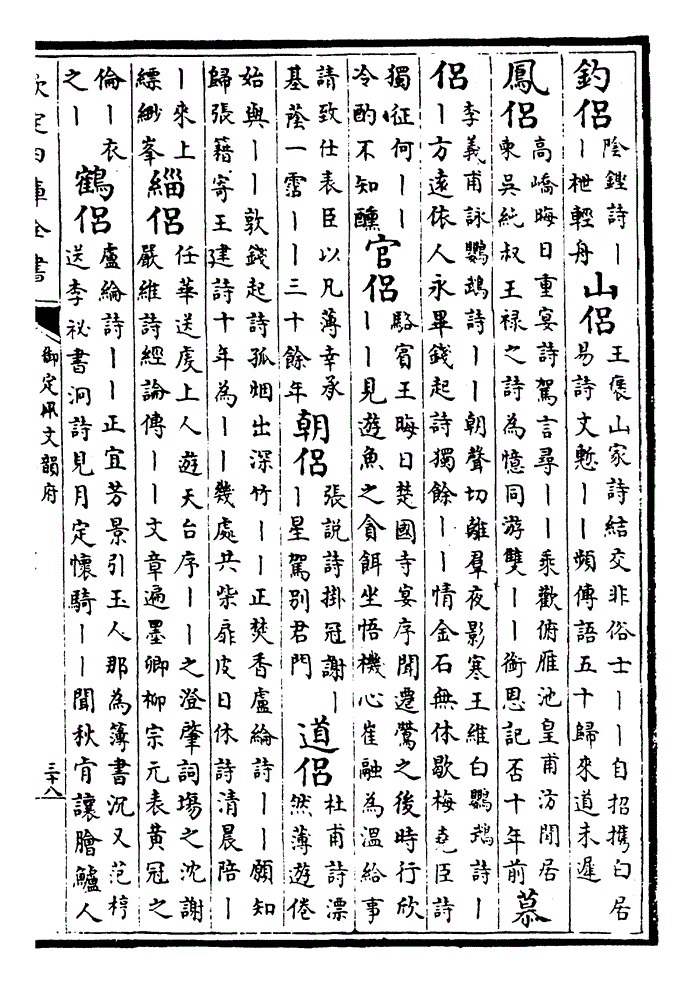 釣侶
陰鏗詩丨
丨枻輕舟
山侶
王褒山家詩結交非俗士丨丨自招攜白居
易詩文慙丨丨頻傳語五十歸來道未遲
鳳侶
高嶠晦日重宴詩駕言尋丨丨乘歡俯雁池皇甫汸閒居
柬吳純叔王祿之詩為憶同游雙丨丨銜恩記否十年前
慕
侶
李義甫詠鸚鵡詩丨丨朝聲切離羣夜影寒王維白鸚鵡詩丨
丨方遠依人永畢錢起詩獨餘丨丨情金石無休歇梅堯臣詩
獨征何丨丨
冷酌不知醺
官侶
駱賓王晦日楚國寺宴序聞遷鶯之後時行欣
丨丨見遊魚之貪餌坐悟機心崔融為溫給事
請致仕表臣以凡薄幸承
基蔭一霑丨丨三十餘年
朝侶
張説詩掛冠謝丨
丨星駕別君門
道侶
杜甫詩漂
然薄遊倦
始與丨丨敦錢起詩孤烟出深竹丨丨正焚香盧綸詩丨丨願知
歸張籍寄王建詩十年為丨丨幾處共柴扉皮日休詩清晨陪丨
丨來上
縹緲峯
緇侶
任華送虔上人遊天台序丨丨之澄肇詞塲之沈謝
嚴維詩經論傳丨丨文章遍墨卿柳宗元表黃冠之
倫丨衣
之丨
鶴侶
盧綸詩丨丨正宜芳景引玉人那為簿書沉又范梈
送李祕書泂詩見月定懷騎丨丨聞秋肯讓膾鱸人
欽定四庫全書
御定佩文韻府
三十八